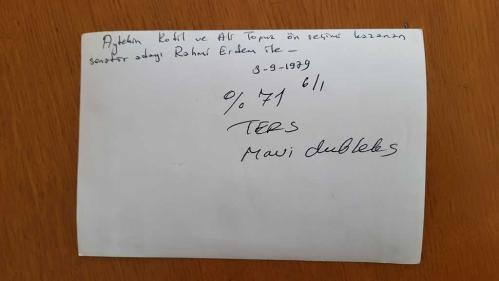 Aytekin Kotil ve Ali Topuz ön seçimi kazanan
senatör adayı Rahmi Erdem ile -
3-9-1979
% 71 6/1
TERS
Mavi dubleks